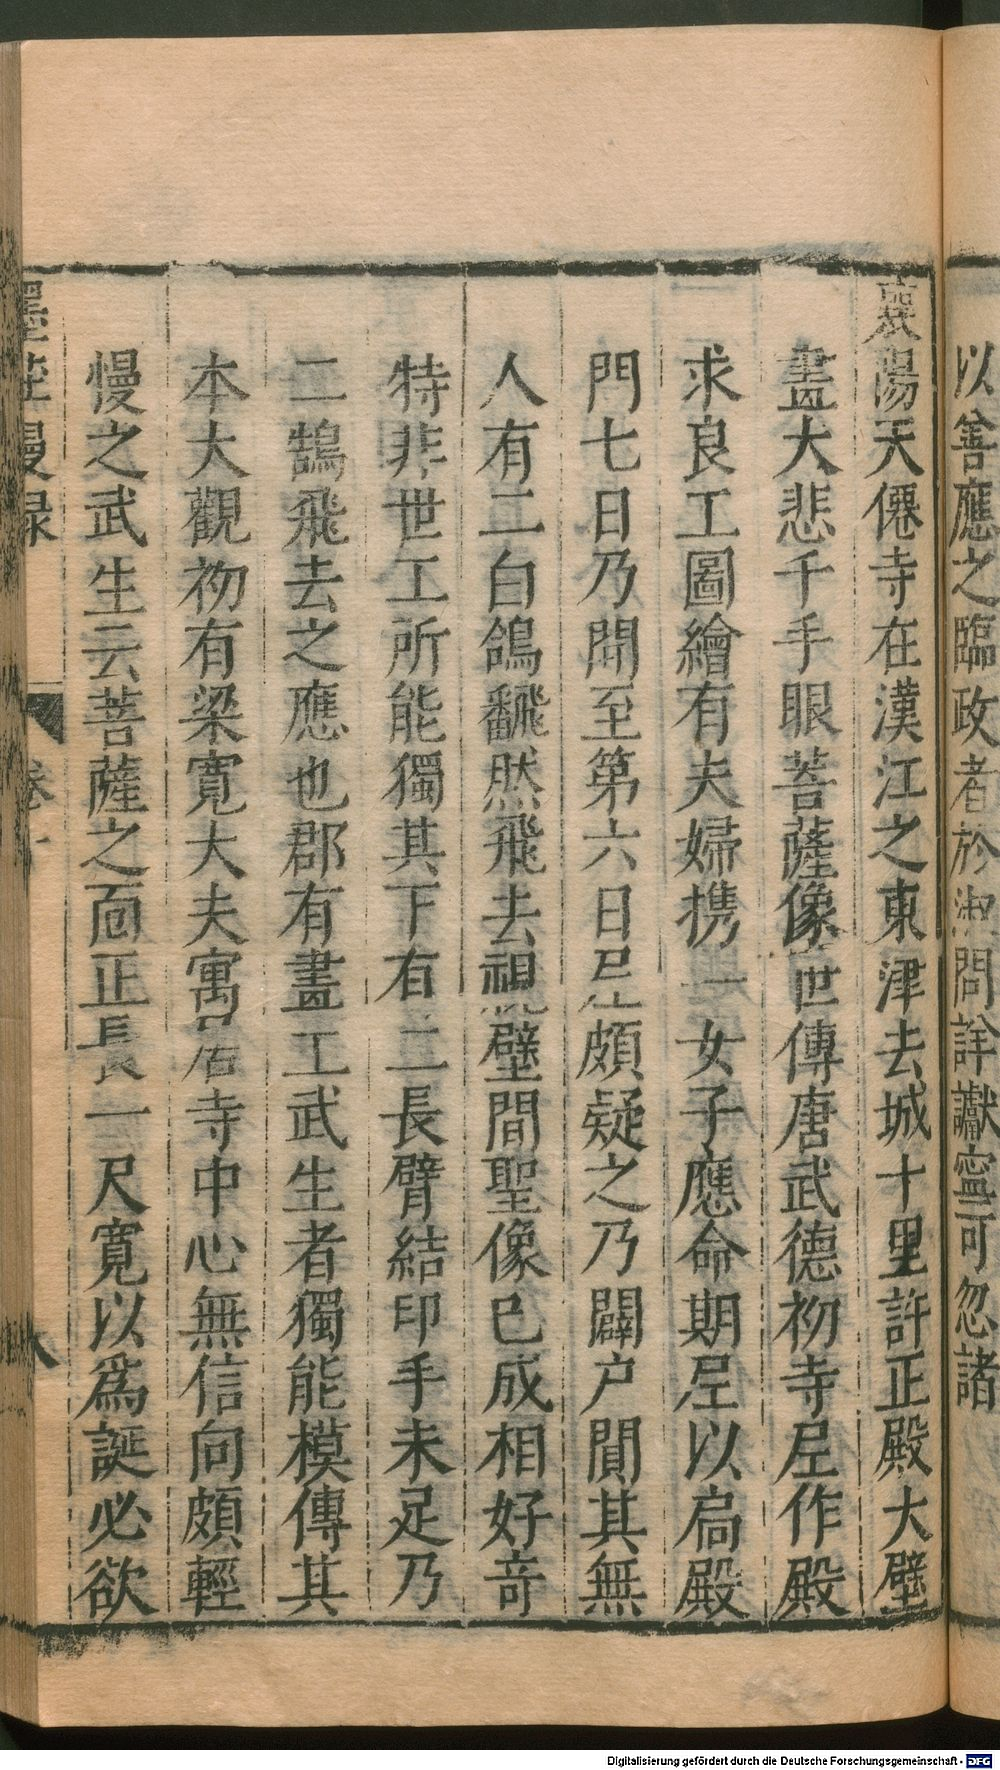 以善應之臨政者於淑問詳讞寧可忽諸
襄陽天僊寺在漢江之東津去城十里許正殿大壁
畫大悲千手眼菩薩像世傳唐武德初寺尼作殿
求良工圖繪有夫婦携一女子應命期尼以扄殿
門七日乃開至第六日尼頗疑之乃闢户閴其無
人有二白鴿翻然飛去視壁間聖像已成相好竒
特非世工所能獨其下有二長臂結印手未足乃
二鵠飛去之應也郡有畫工武生者獨能模傳其
本大觀初有梁寬大夫寓居寺中心無信向頗輕
慢之武生云菩薩之面正長一尺寬以爲誕必欲
墨莊漫録
卷十
八
Digitalisierung gefördert durch die Deutsche Forschungsgemeinschaft - DFG